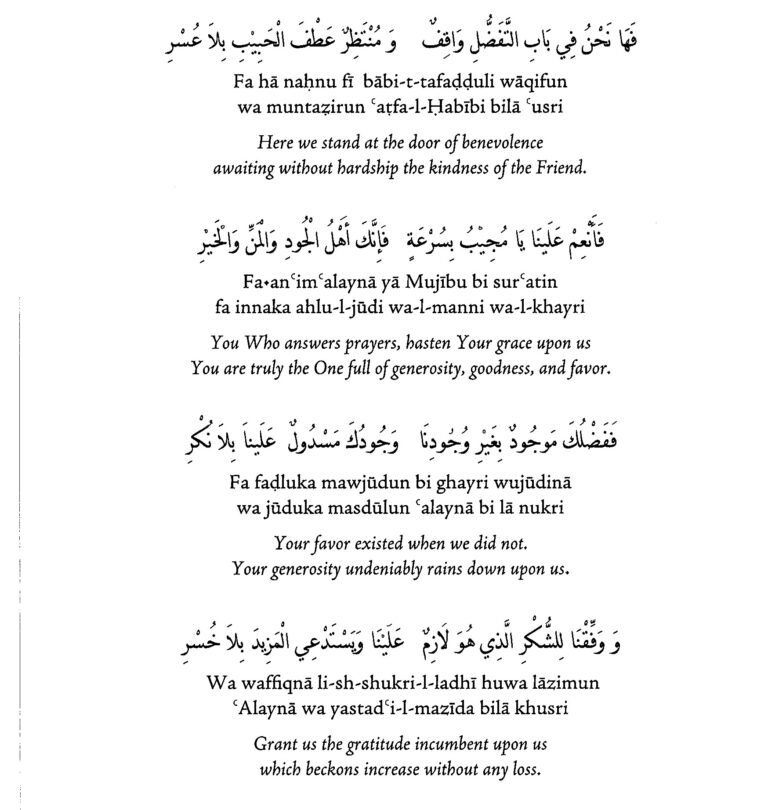 فَهَا نَحْنُ فِي بَابِ التَّفَضُّلِ وَاقِفٌ وَ مُنْتَظِرٌ عَطْفَ الْحَبِيْبِ بِلاَ عُسْرِ
Fa hā naḥnu fī bābi-t-tafaḍḍuli wāqifun
wa muntaẓirun ʿaṭfa-l-Ḥabībi bilā ʿusri
Here we stand at the door of benevolence
awaiting without hardship the kindness of the Friend.
فَأَنْعِمْ عَلَينَا يَا مُجِيْبُ بِسُرْعَةٍ فَإِنَّكَ أَهْلُ الْجُودِ وَالْمَنِّ وَالْخَيْرِ
Fa•anʿimʿalaynā yā Mujību bi surʿatin
fa innaka ahlu-l-jūdi wa-l-manni wa-l-khayri
You Who answers prayers, hasten Your grace upon us
You are truly the One full of generosity, goodness, and favor.
فَفَضْلُكَ مَوجُودٌ بِغَيْرِ وُجُودِنَا وَجُودُكَ مَسْدُولٌ عَلَينَا بِلاَ نُكْرِ
Fa faḍluka mawjūdun bi ghayri wujūdinā
wa jūduka masdūlun ʿalaynā bi lā nukri
Your favor existed when we did not.
Your generosity undeniably rains down upon us.
وَ وَفِّقْنَا لِلشُّكْرِ الَّذِي هُوَ لَازِمٌ عَلَيْنَا وَيَسْتَدْعِي الْمَزِيدَ بِلاَ خُسْرِ
Wa waffiqnā li-sh-shukri-l-ladhī huwa lāzimun
ʿAlaynā wa yastadʿi-l-mazīda bilā khusri
Grant us the gratitude incumbent upon us
which beckons increase without any loss.